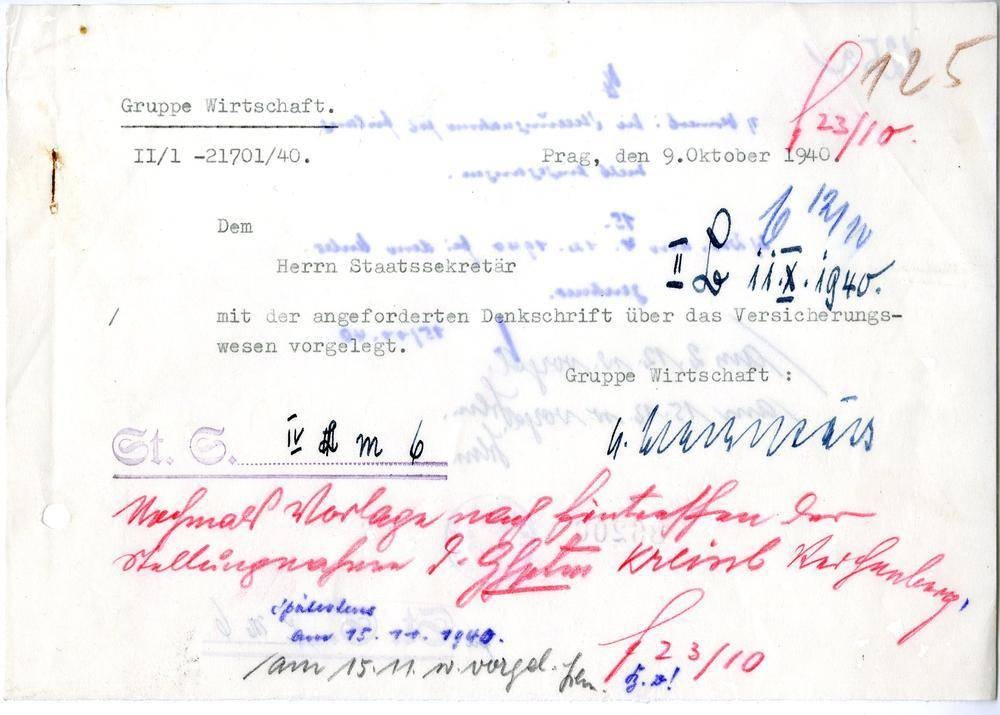 125
Gruppe Wirtschaft.
23/10.
II/1 -21701/40. Prag, den 9.Oktober 1940.
Dem
12/10
Herrn Staatssekretär
II 11.X.1940.
/ mit der angeforderten Denkschrift über das Versicherungs-
wesen vorgelegt.
Gruppe Wirtschaft :
St. S. IV m 6
Nochmals Vorlage nach Eintreffen der
Stellungnahme d. Kreisl Reichenberg,
spätestens
am 15.11.1940.
23/10
/am 15.11. w. vorgel.